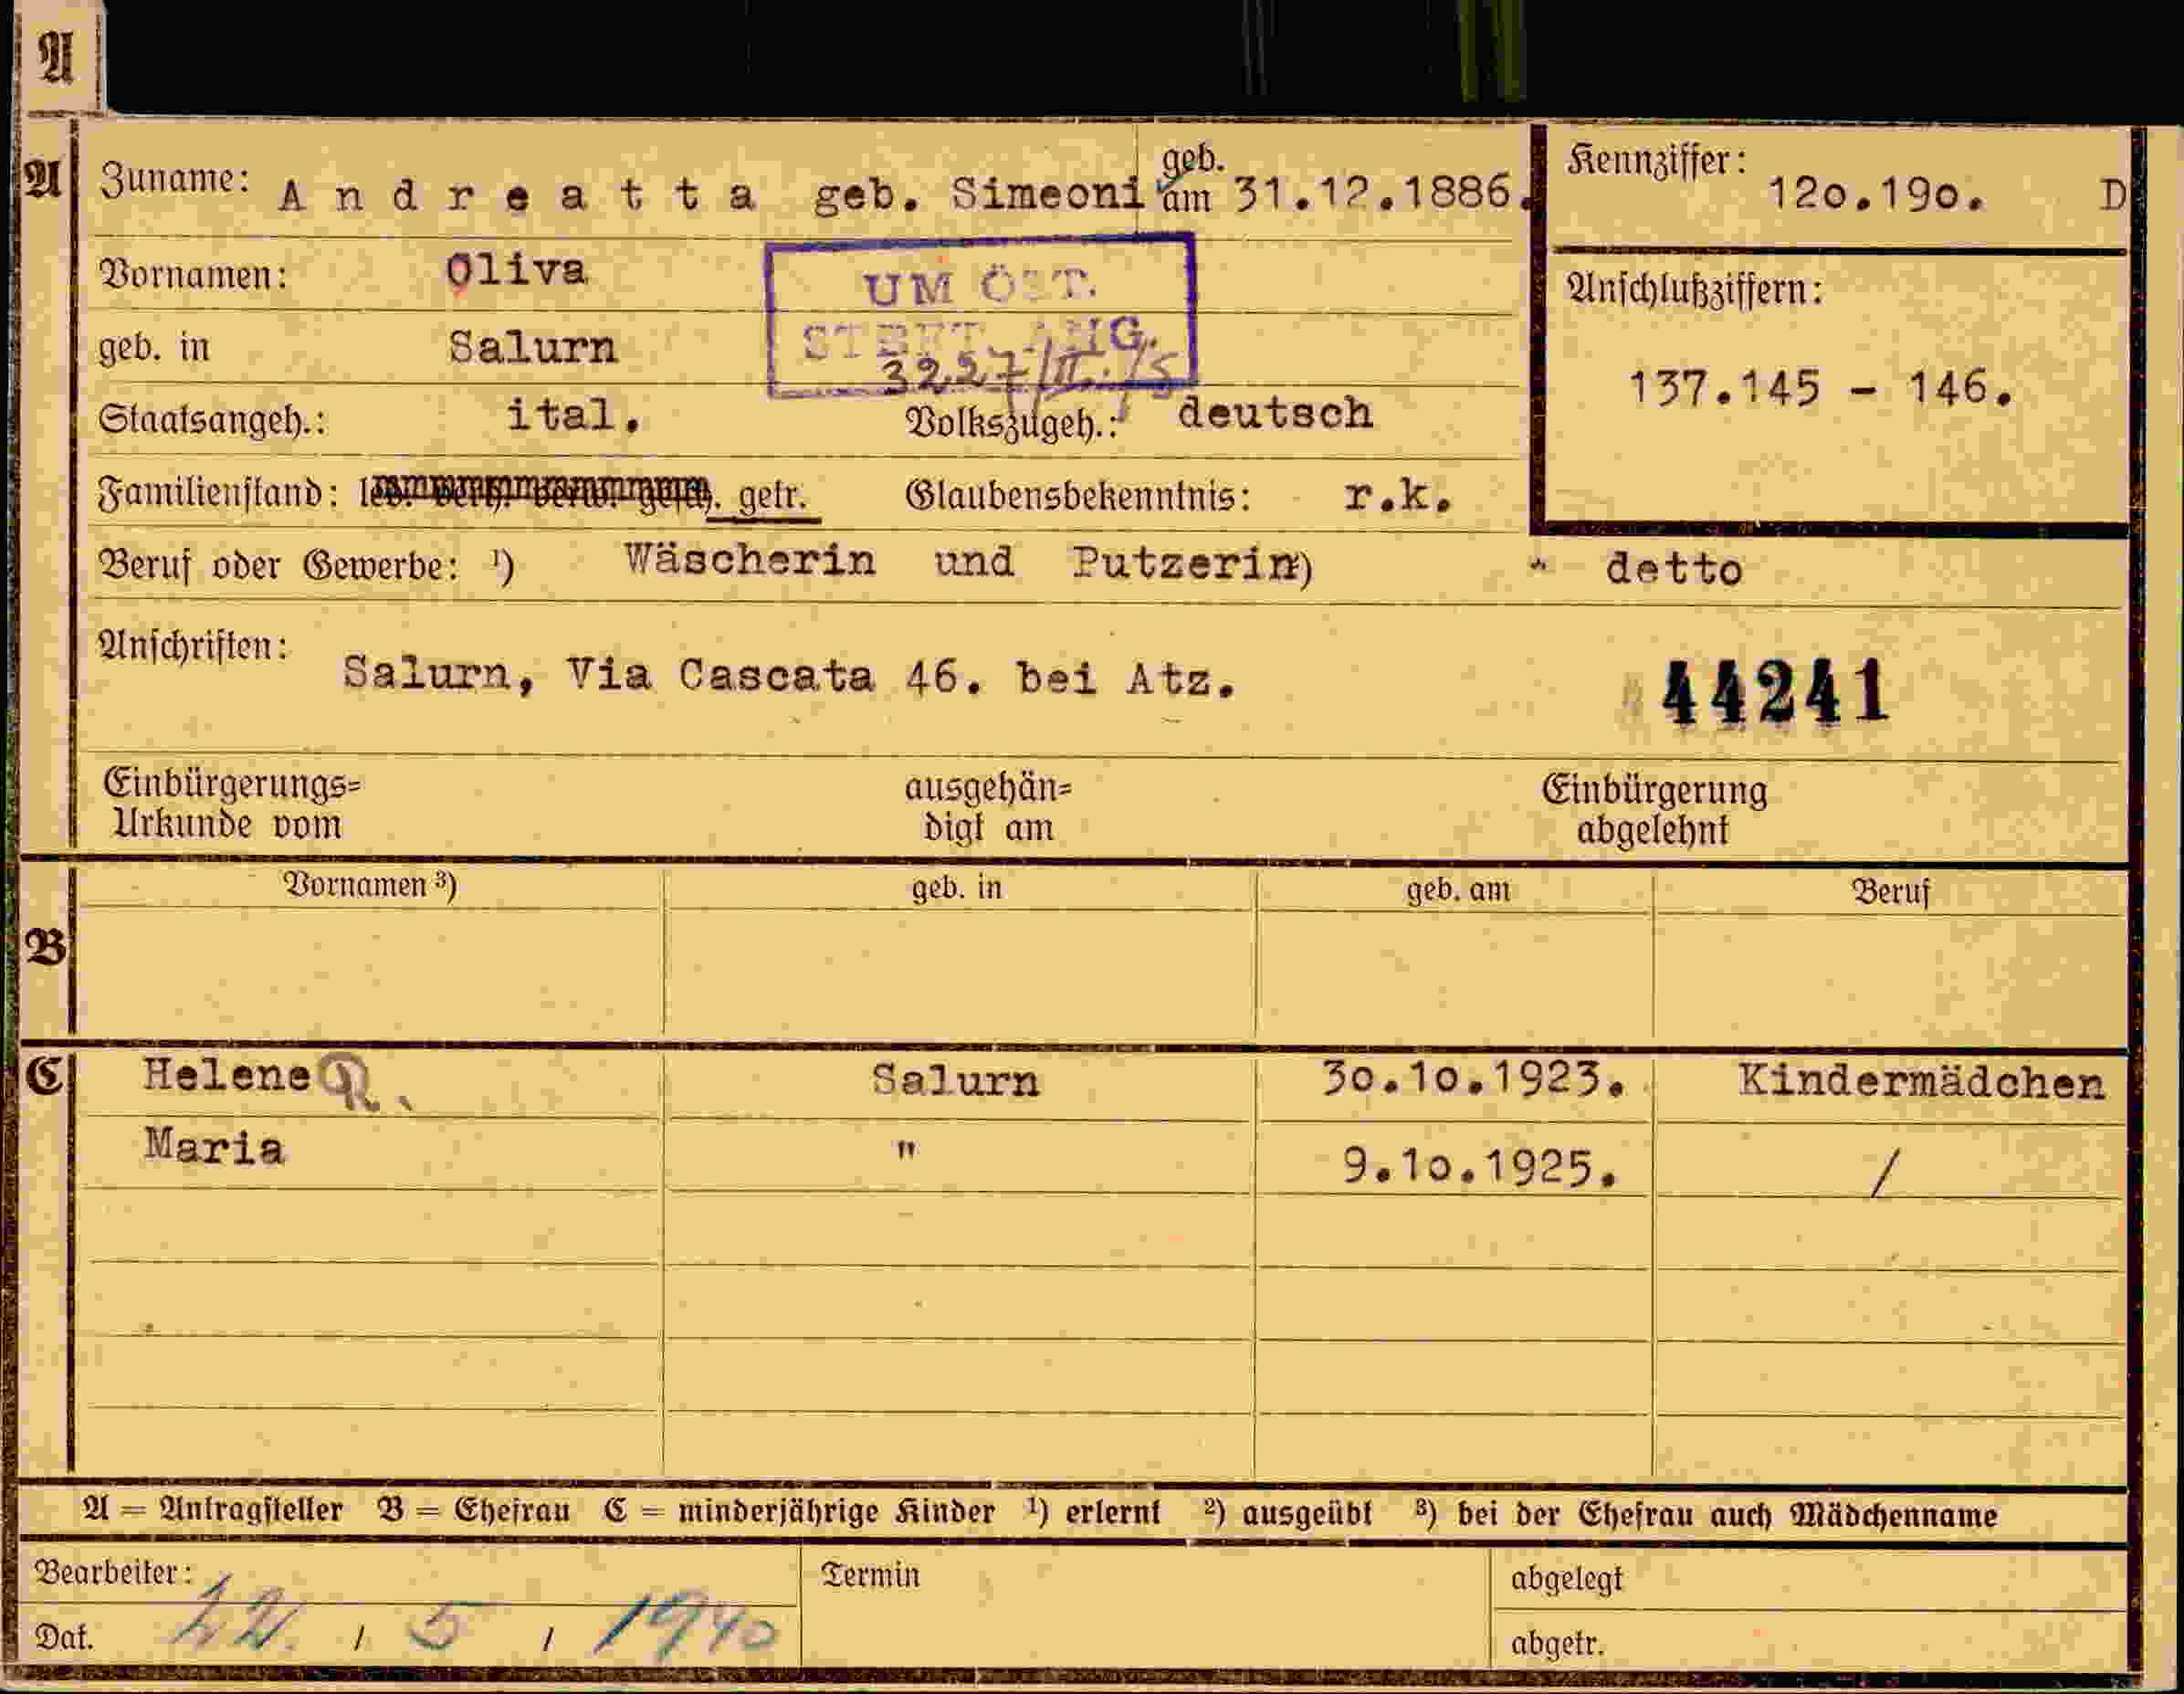 A
A Zuname: Andreatta geb. Simeoni geb. am 31.12.1886. Kennziffer: 12o.19o. D
Vornamen: Oliva
UM ÖST.
geb. in Salurn
STBFT. ANG.
3227/II./5
Anschlußziffern:
137.145 - 146.
Staatsangeh.: ital. Volkszugeh.: deutsch
Familienstand: led. verh. verw. gesch. getr. Glaubensbekenntnis: r.k.
Beruf oder Gewerbe: ¹) Wäscherin und Putzerin ²) detto
Anschriften: Salurn, Via Cascata 46. bei Atz.
44241
Einbürgerungs= Urkunde vom
ausgehän= digt am
Einbürgerung abgelehnt
Vornamen ³) geb. in geb. am Beruf
B
C Helene R. Salurn 3o.1o.1923. Kindermädchen
Maria " 9.1o.1925. /
A = Antragsteller B = Ehefrau C = minderjährige Kinder ¹) erlernt ²) ausgeübt ³) bei der Ehefrau auch Mädchenname
Bearbeiter: Termin abgelegt
Dat. 22. / 5 / 1940 abgetr.